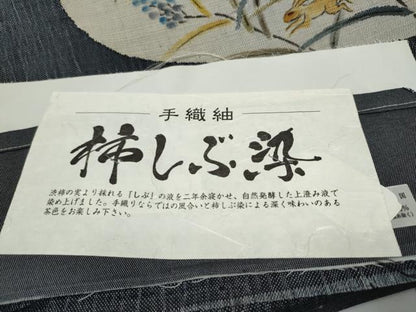 手織紬
柿しぶ染
渋柿の実より採れる「しぶ」の液を二年余寝かせ、自然発酵した上澄み液で
染め上げました。手織りならではの風合いと柿しぶ染による深く味わいのある
茶色をお楽しみ下さい。